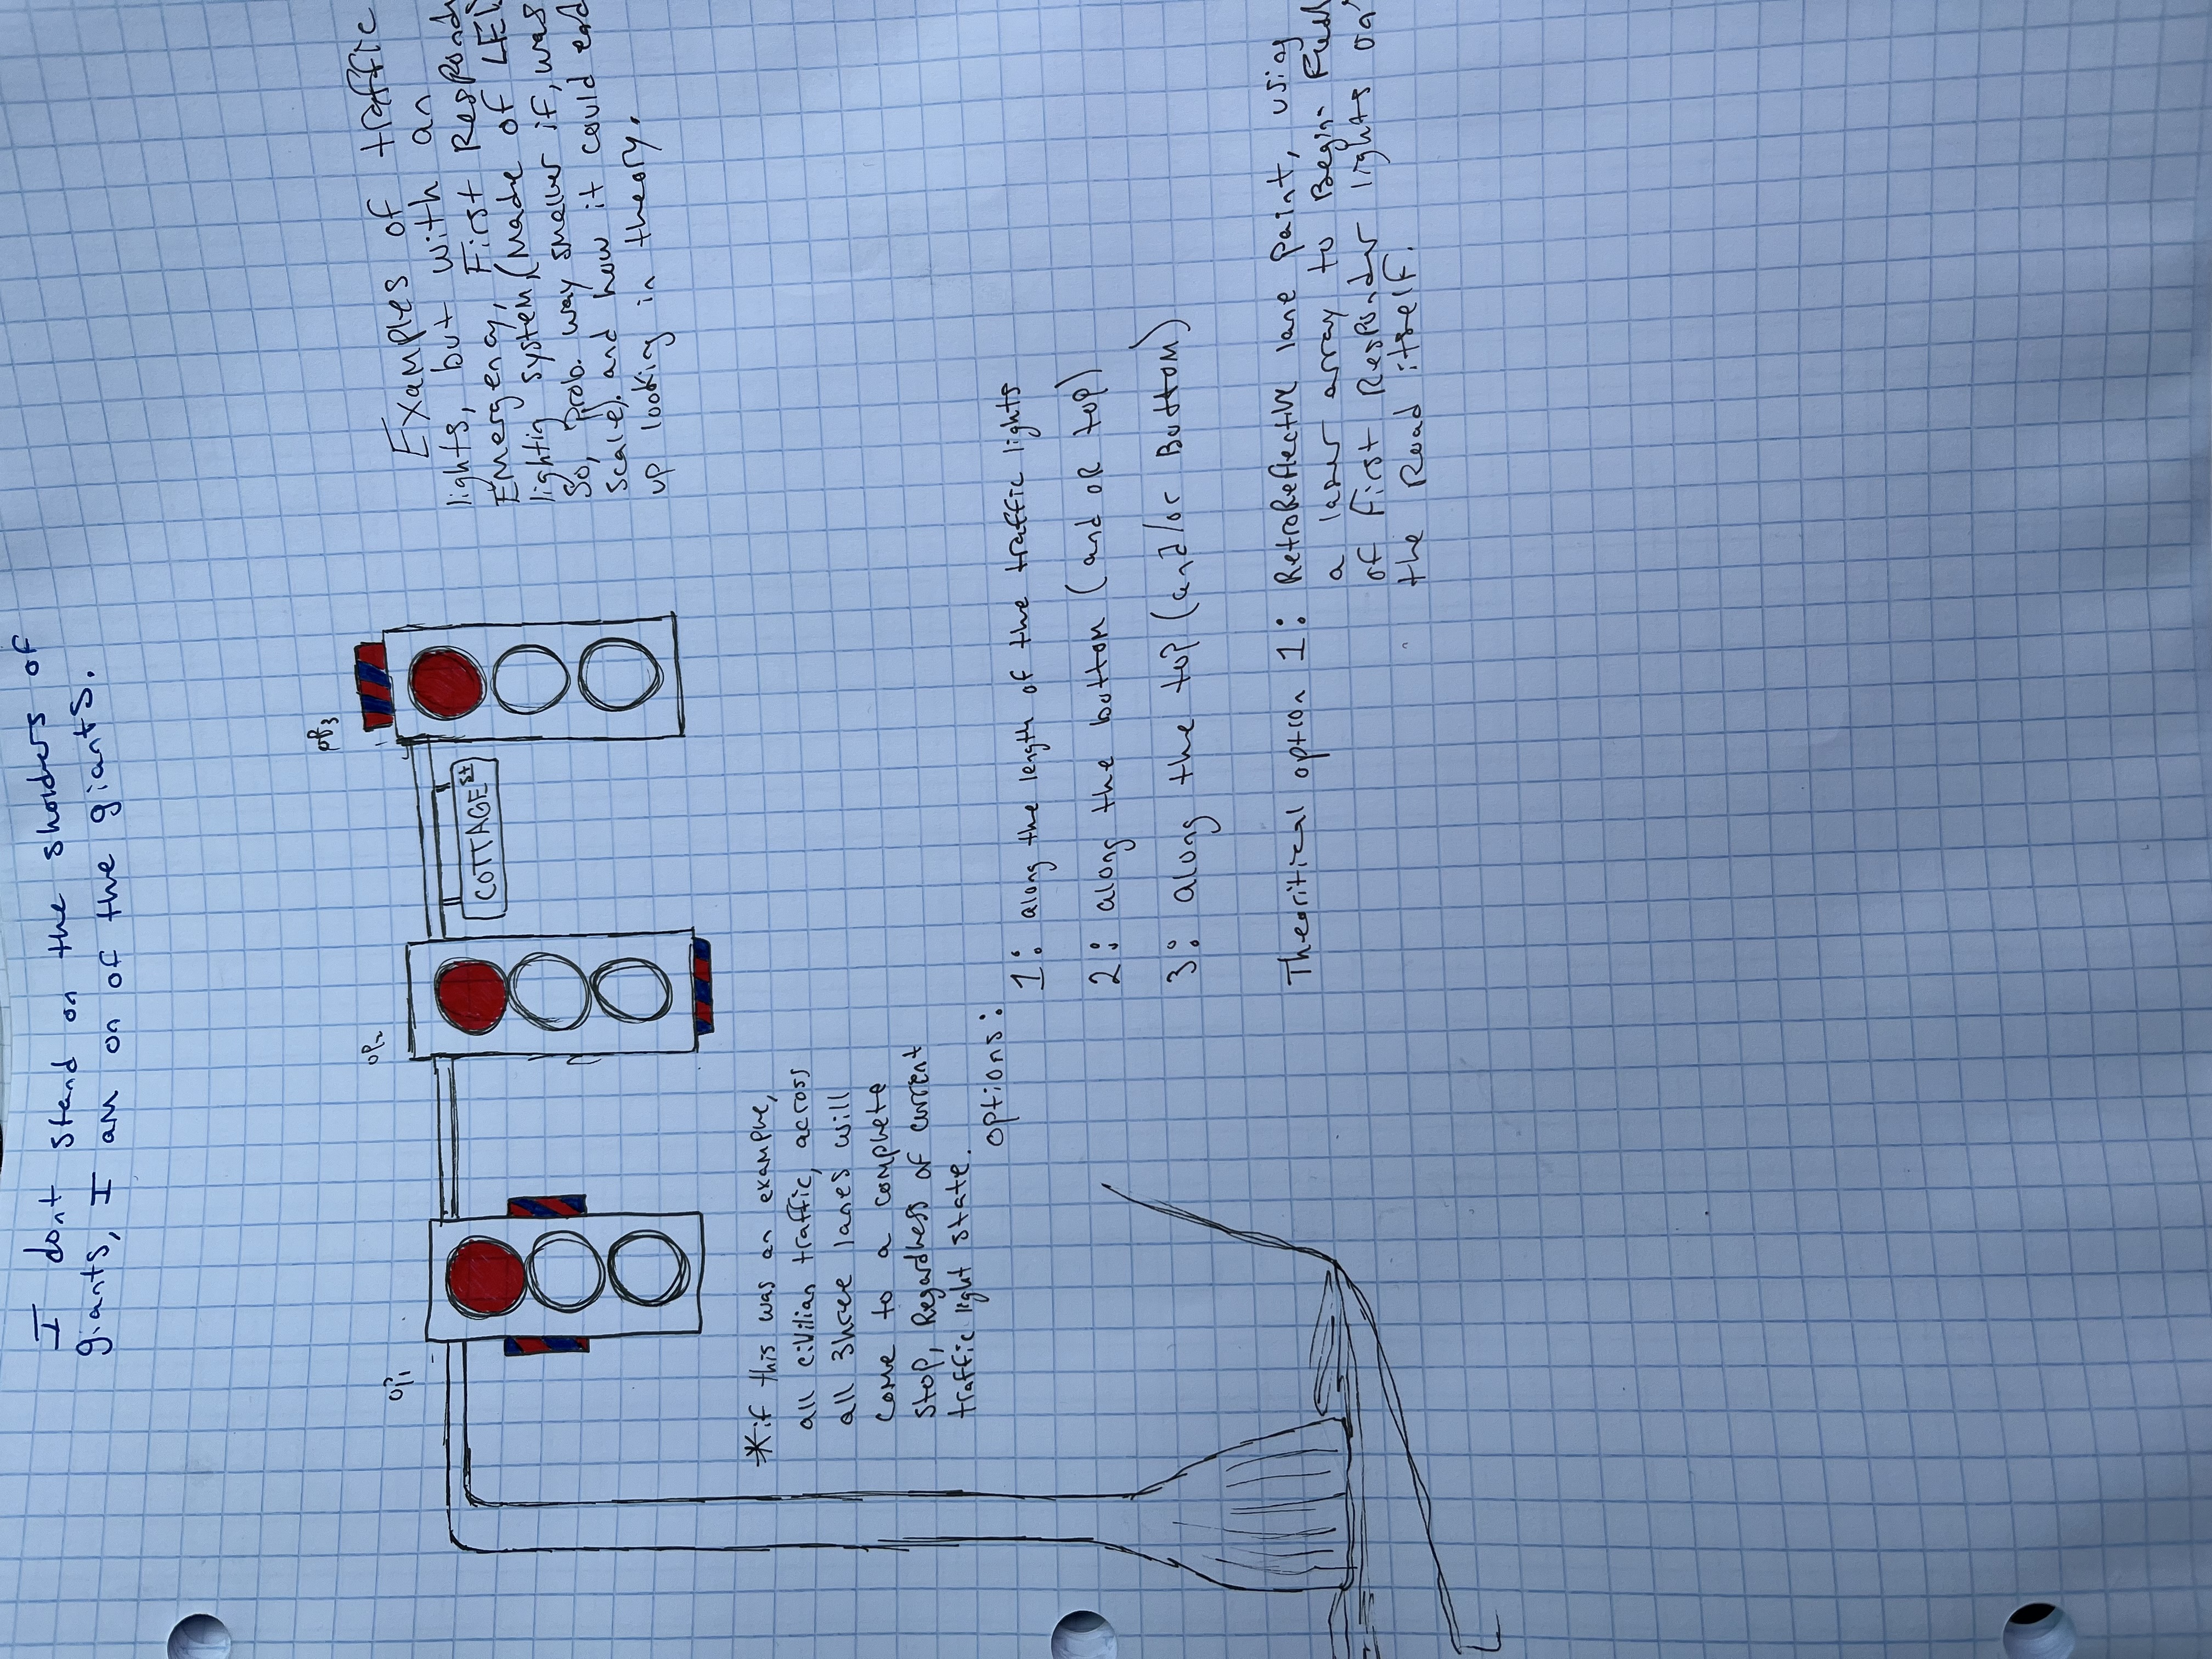 I dont stand on the sholders of
giants, I am on of the giants.
op1
op2
op3
COTTAGE St
Examples of traffic
lights, but with an
Emergency, First Respond
lightig system, (Made of LED
So, prob. way smaller if, was
scale). and how it could end
up looking in theory.
*if this was an example,
all civilian traffic, across
all 3hree lanes will
come to a complete
stop, Regardless of current
traffic light state.
options:
1: along the length of the traffic lights
2: along the bottom (and or top)
3: along the top (and/or Bottom)
Theoritical option 1: RetroReflective lane paint, using
a laser array to Begin
of First Responder lights on
the Road itself.